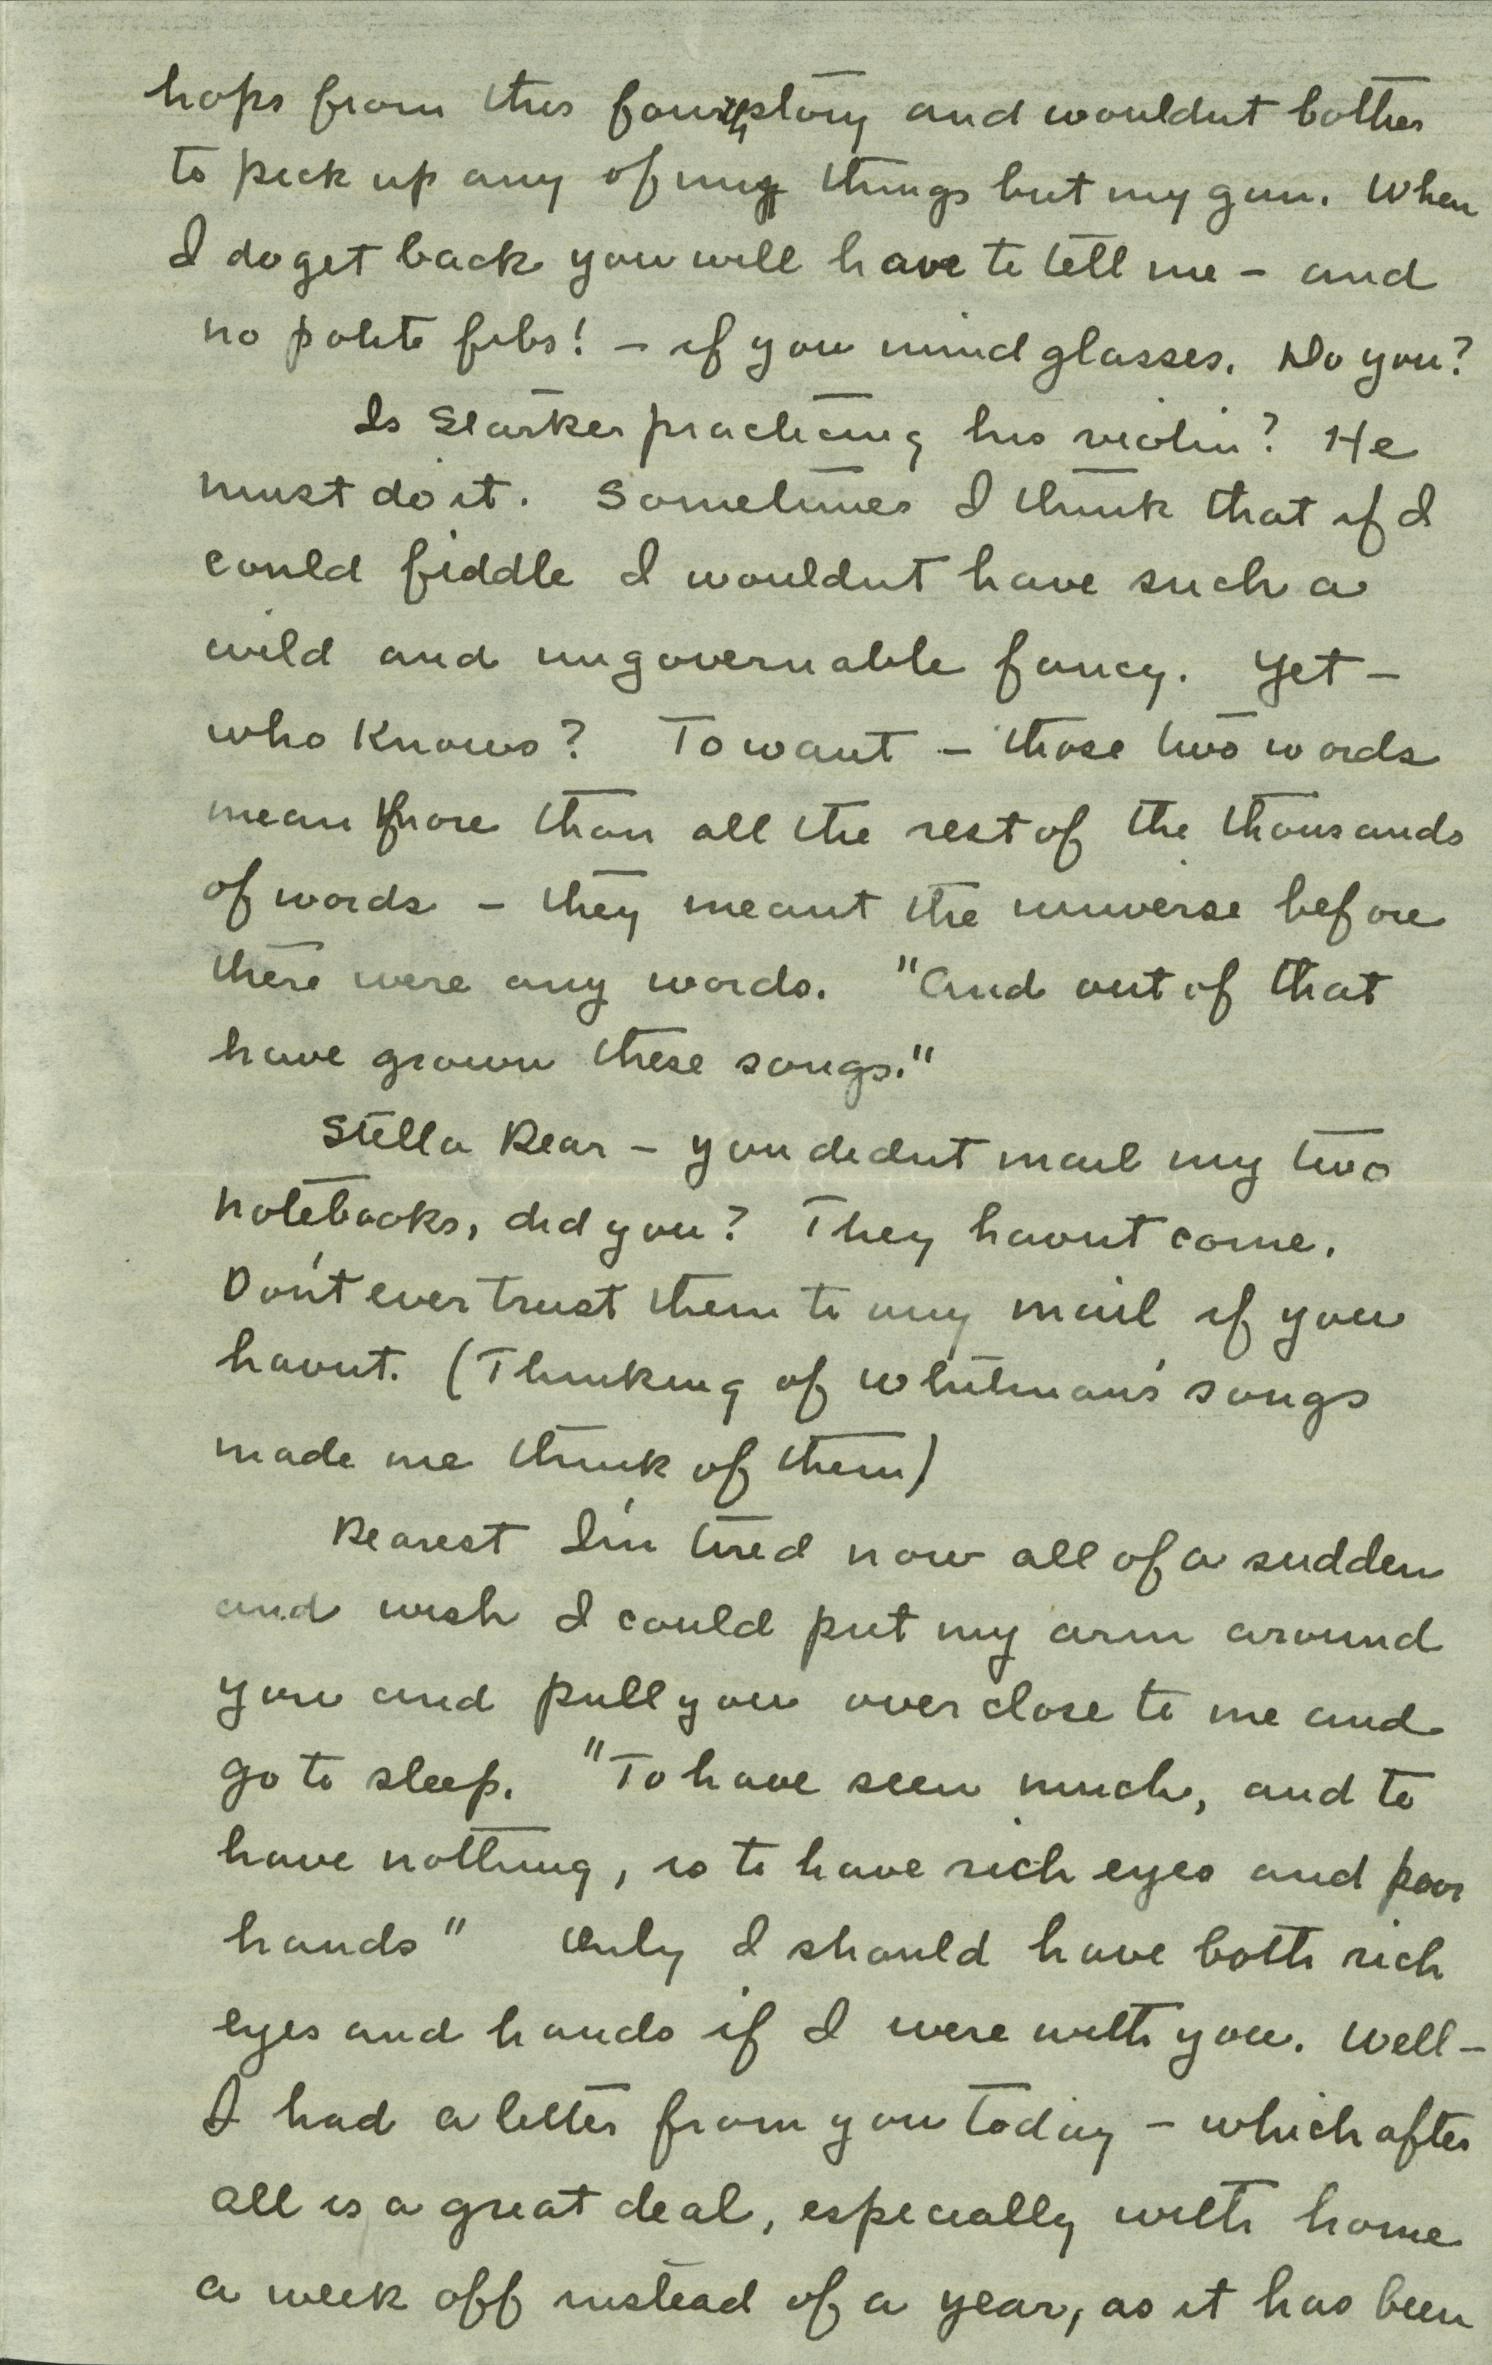 hops from this fourth story and wouldnt bother
to pick up any of my things but my gun. When
I do get back you will have to tell me – and
no polite fibs! – if you mind glasses. Do you?
Is Starker practicing his violin? He
must do it. Sometimes I think that if I
could fiddle I wouldnt have such a
wild and ungovernable fancy. Yet –
who knows? To want – those two words
mean more than all the rest of the thousands
of words – they meant the universe before
there were any words. "And out of that
have grown these songs."
Stella Dear – you didnt mail my two
notebooks, did you? They havnt come.
Don't ever trust them to any mail if you
havnt. (Thinking of Whitman's songs
made me think of them)
Dearest I'm tired now all of a sudden
and wish I could put my arm around
you and pull you over close to me and
go to sleep. "To have seen much, and to
have nothing, is to have rich eyes and poor
hands" Only I should have both rich
eyes and hands if I were with you. Well –
I had a letter from you today – which after
all is a great deal, especially with home
a week off instead of a year, as it has been